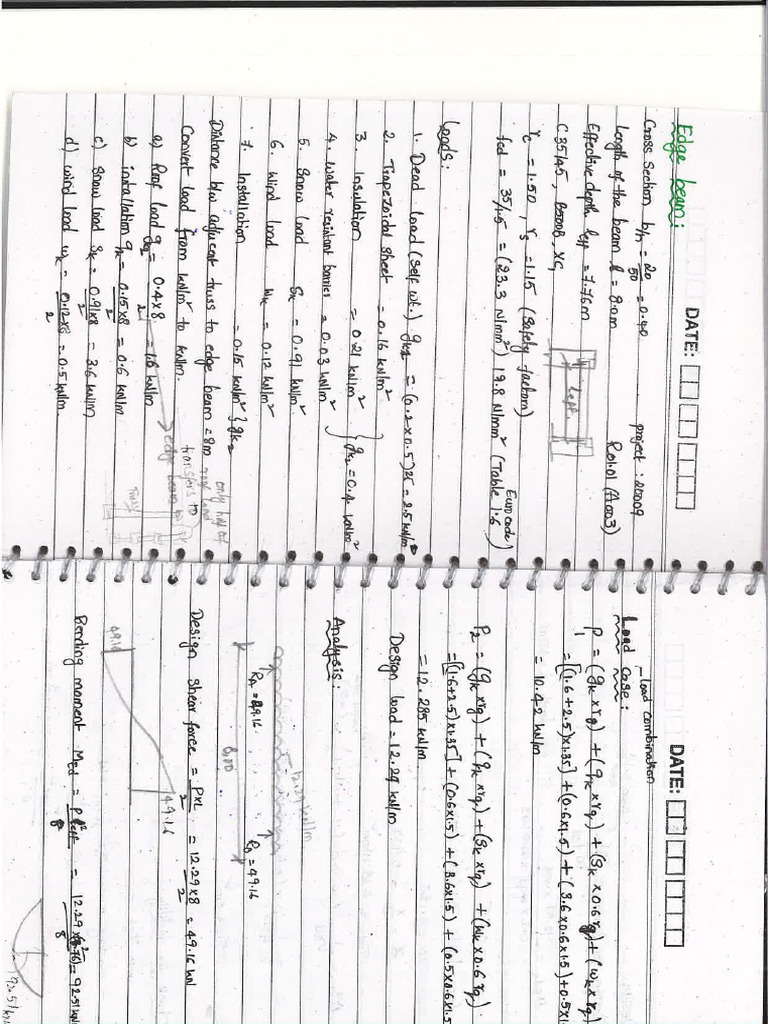 DATE:
Edge beam:
Cross Section b/h = 20/50 = 0.40 project : 20009
Length of the beam l = 8.0m R01.01 (A003)
Effective depth leff = 7.76m
C 35/45, B500B, XC1 leff
γc = 1.50, γs = 1.15 (Safety factors)
fcd = 35/1.5 = (23.3 N/mm²) 19.8 N/mm² (Table 1.6 Euro code)
Loads:
1. Dead Load (Self wt.) gk1 = (0.2×0.5)25 = 2.5 kN/m
2. Trapezoidal Sheet = 0.16 kN/m²
3. Insulation = 0.21 kN/m² } gk2 = 0.4 kN/m²
4. Water resistant barries = 0.03 kN/m²
5. Snow load Sk = 0.91 kN/m²
6. Wind load wk = 0.12 kN/m²
7. Installation = 0.15 kN/m² } qk2
Distance b/w adjucent truss to edge beam = 8m
Convert load from kN/m² to kN/m.
only half of roof load transfers to edge beam
a) Roof load g2 = 0.4×8/2 = 1.6 kN/m
Truss
b) installation qk = 0.15×8/2 = 0.6 kN/m
c) Snow load Sk = 0.91×8/2 = 3.6 kN/m
d) wind load wk = 0.12×8/2 = 0.5 kN/m.
DATE:
- load combination
Load case:
P1 = (gk × γg) + (qk × γq) + (Sk × 0.6 γq) + (wk × γq)
= [(1.6+2.5)×1.35] + (0.6×1.5) + (3.6×0.6×1.5) + 0.5×1.
= 10.42 kN/m
P2 = (gk × γg) + (qk × γq) + (Sk × γq) + (wk × 0.6 γq)
= [(1.6+2.5)×1.35] + (0.6×1.5) + (3.6×1.5) + (0.5×0.6×1.5
= 12.285 kN/m
Design load = 12.29 kN/m
Analysis:
12.29 kN/m
RA = 49.16 RB = 49.16
8.00
Design Shear force = P×L/2 = 12.29×8/2 = 49.16 kN
49.16
49.16
Bending moment Med = P leff²/8 = 12.29×(7.76)²/8 = 92.51 kN
92.51 kN